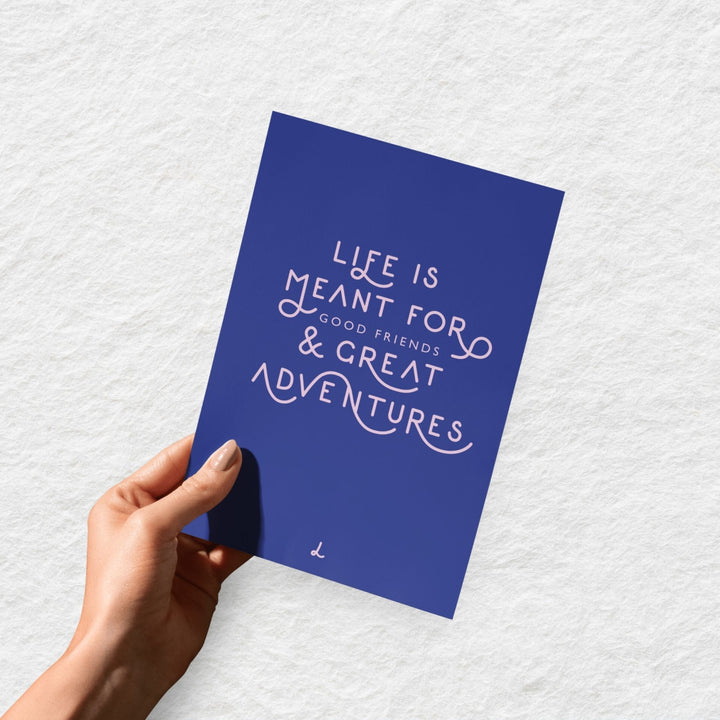 LIFE IS
MEANT FOR
GOOD FRIENDS
& GREAT
ADVENTURES
L